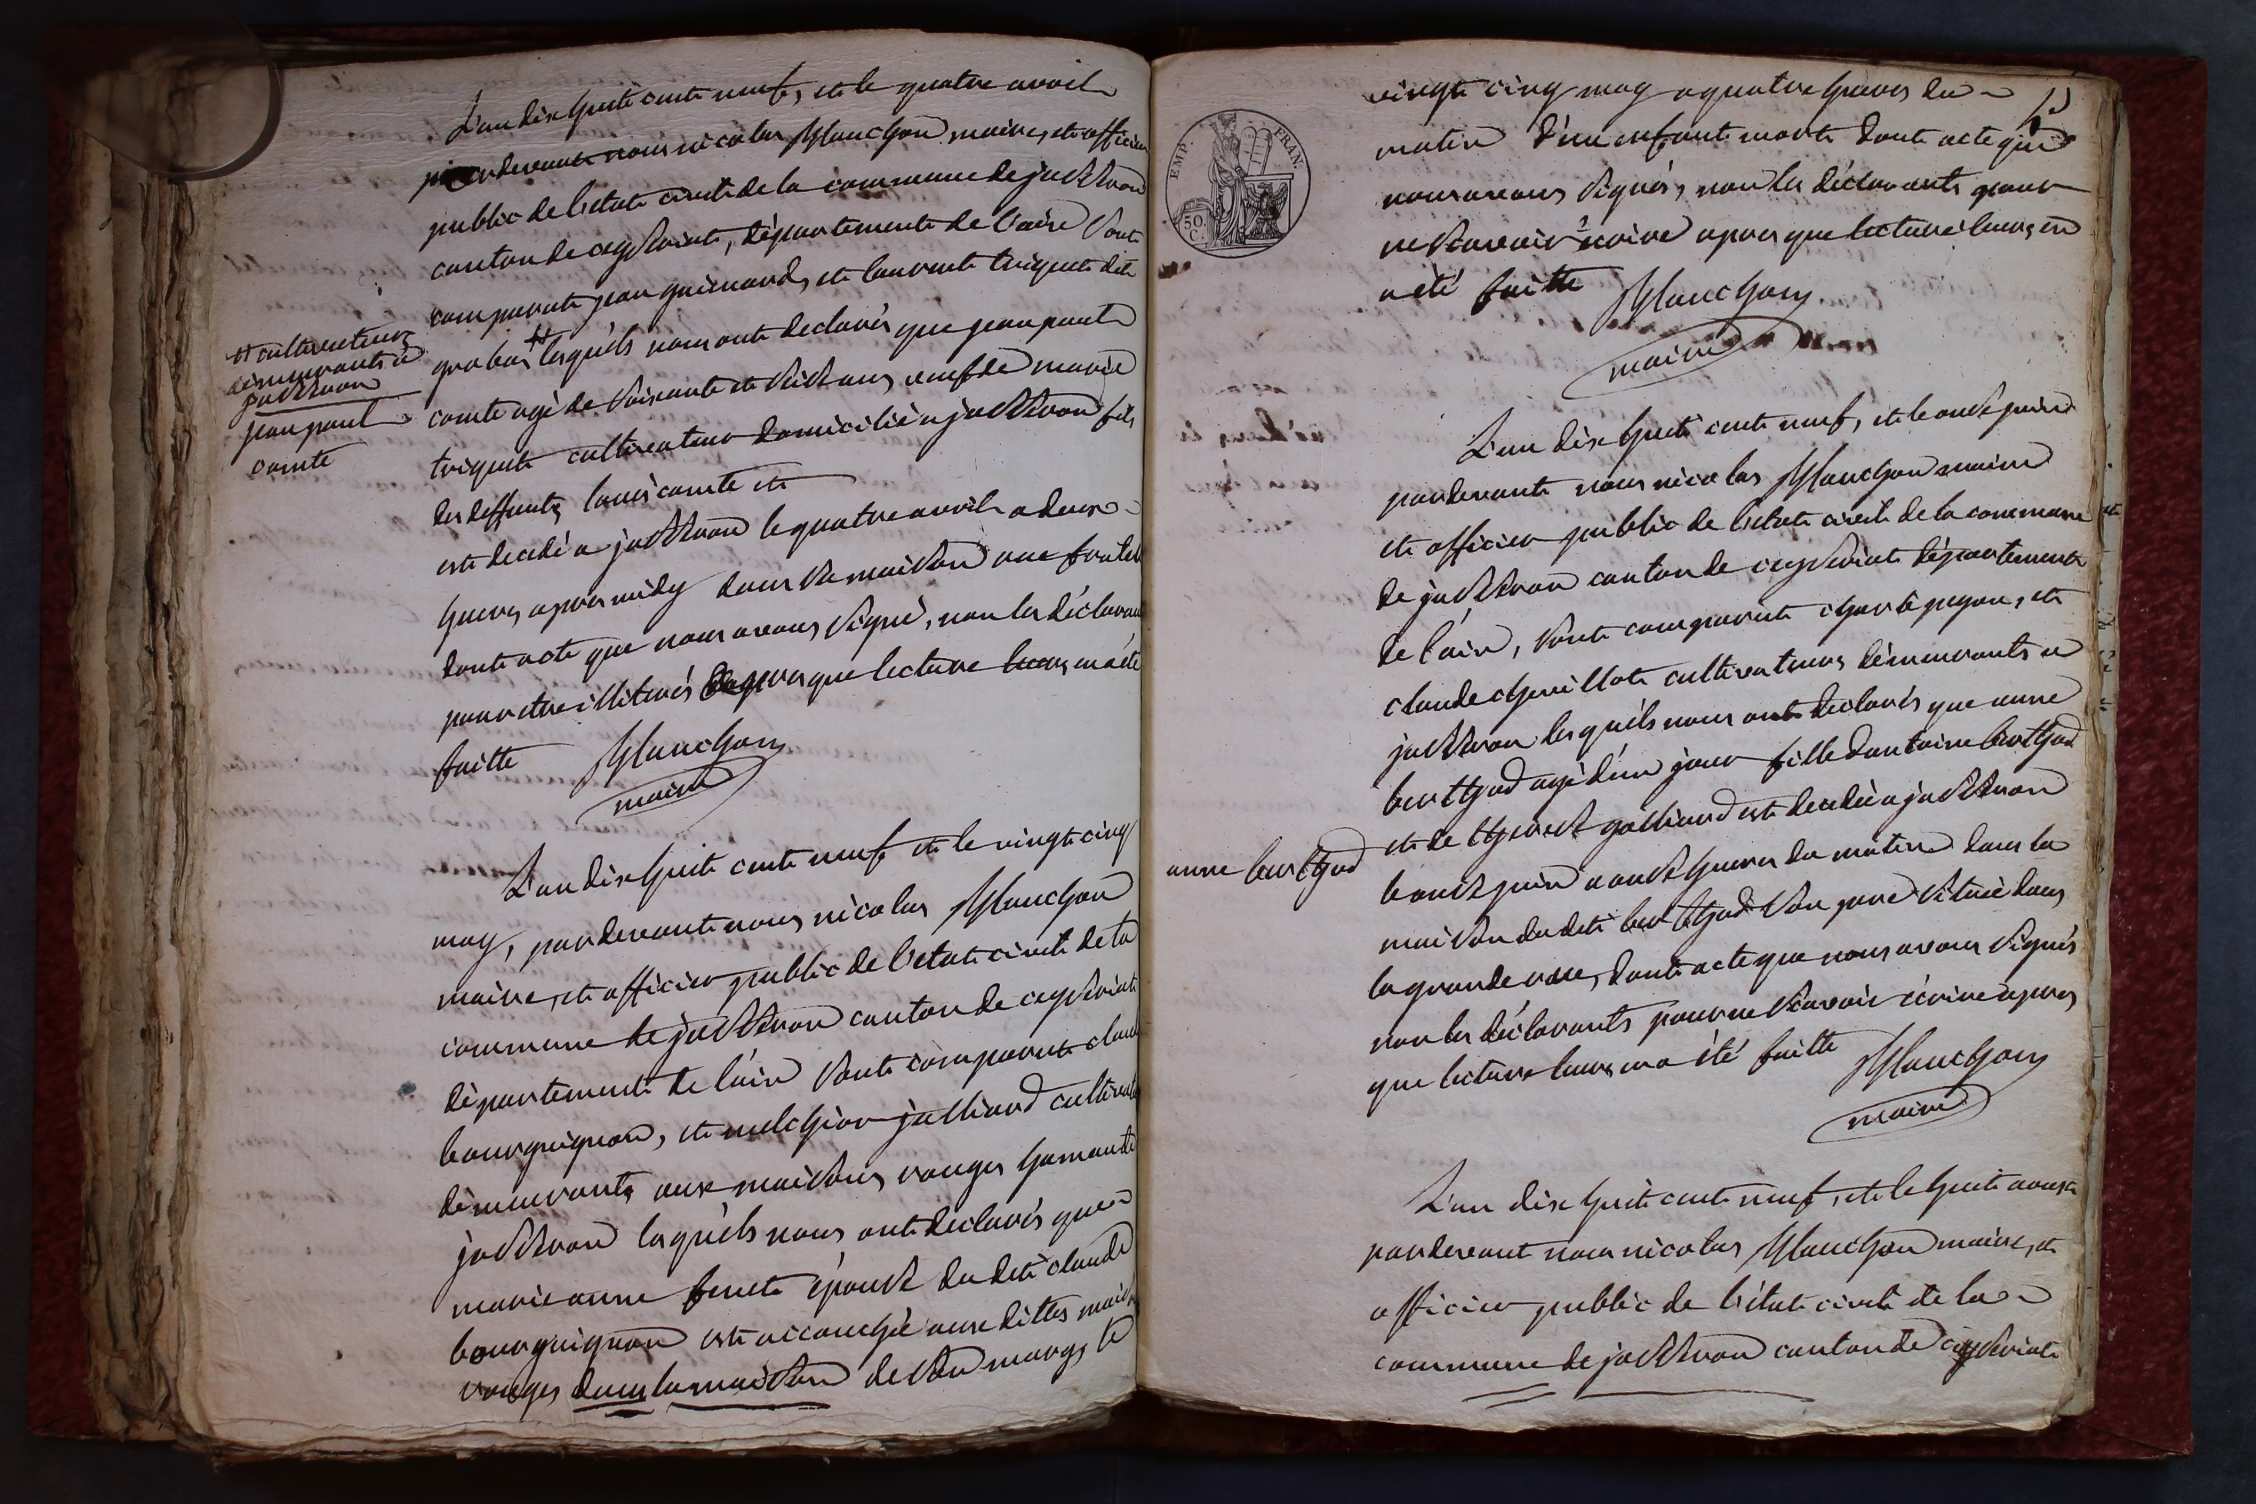 L'an dix huit cent neuf, et le quatre avril
pardevant nous nicolas Planchon maire, et officier
public de l'etat civil de la commune de jasseron
canton de ceyseriat, département de l'ain sont
comparut jean guienard, et laurent triquet dit
grobas # lesquels nous ont declarés que jean paul
comte agé de soixante et seize ans veuf de marie
triquet cultivateur domicilié a jasseron fils
des deffunts louis comte et
est decedé a jasseron le quatre avril a deux
heures apres midy dans sa maison
dont acte que nous avons signé, non les déclarants
pour etre illiterés apres que lecture leurs en a été
faitte Planchon
maire
# cultivateurs
demeurants a
jasseron
jean paul
comte
L'an dix huit cent neuf et le vingt cinq
may, pardevant nous nicolas Planchon
maire, et officier public de l'etat civil de la
commune de jasseron canton de ceyseriat
département de l'ain sont comparut claude
bourguignon, et melchior jalliard cultivateurs
demeurants aux maisons rouges hameau de
jasseron lesquels nous ont declarés que
marie anne fenet épouse du dit claude
bourguignon est accouchée aux dittes maisons
rouges dans la maison de son mary, le
EMP. FRAN.
50 C.
vingt cinq may a quatre heures du
matin d'un enfant mort dont acte que
nous avons signés, non les déclarants pour
ne scavoir écrire apres que lecture leurs en
a été faitte Planchon
maire
L'an dix huit cent neuf, et le onze juin
pardevant nous nicolas Planchon maire
et officier public de l'etat civil de la commune
de jasseron canton de ceyseriat département
de l'ain, sont comparut charle pegon, et
claude chevillot cultivateurs démeurants a
jasseron lesquels nous ont declarés que anne
berthod agé d'un jour fille d'antoine berthod
et de therese galliard est decedée a jasseron
le onze juin a onze heures du matin dans la
anne berthod
maison du dit berthod son pere située dans
la grande rue, dont acte que nous avons signés
non les déclarants pour ne scavoir écrire apres
que lecture leurs en a été faitte Planchon
maire
L'an dix huit cent neuf, et le huit aoust
pardevant nous nicolas Planchon maire, et
officier public de l'état civil de la
commune de jasseron canton de ceyseriat